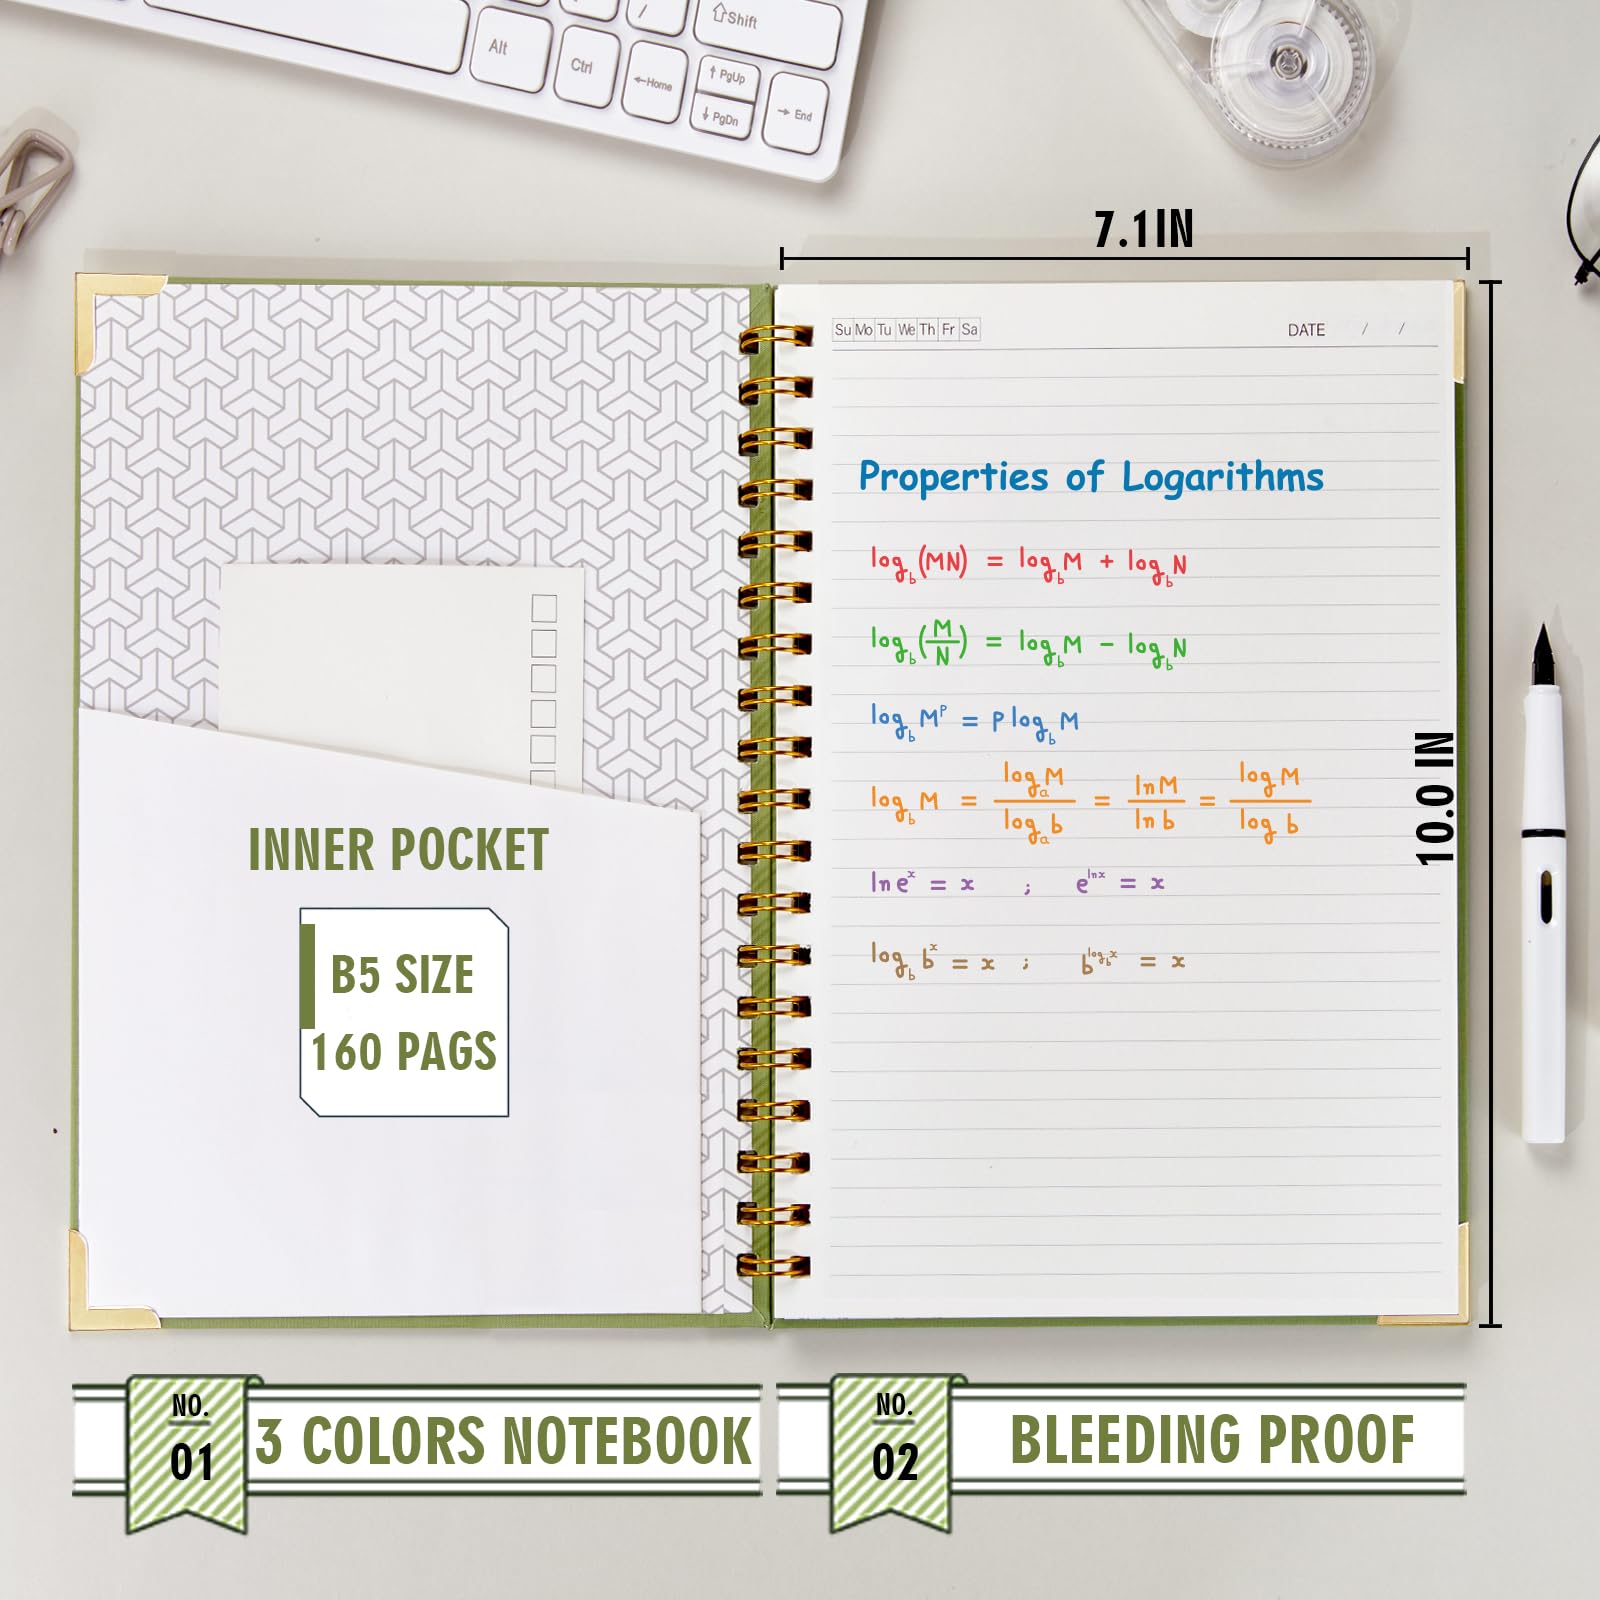 Alt
Ctrl
/
⇧Shift
←Home
↑ PgUp
↓ PgDn
→ End
7.1IN
Su Mo Tu We Th Fr Sa
DATE / /
Properties of Logarithms
log_b(MN) = log_b M + log_b N
log_b(M/N) = log_b M - log_b N
log_b M^p = P log_b M
log_b M = log_a M / log_a b = ln M / ln b = log M / log b
ln e^x = x ; e^ln x = x
log_b b^x = x ; b^log_b x = x
10.0 IN
INNER POCKET
B5 SIZE
160 PAGS
NO.
01
3 COLORS NOTEBOOK
NO.
02
BLEEDING PROOF